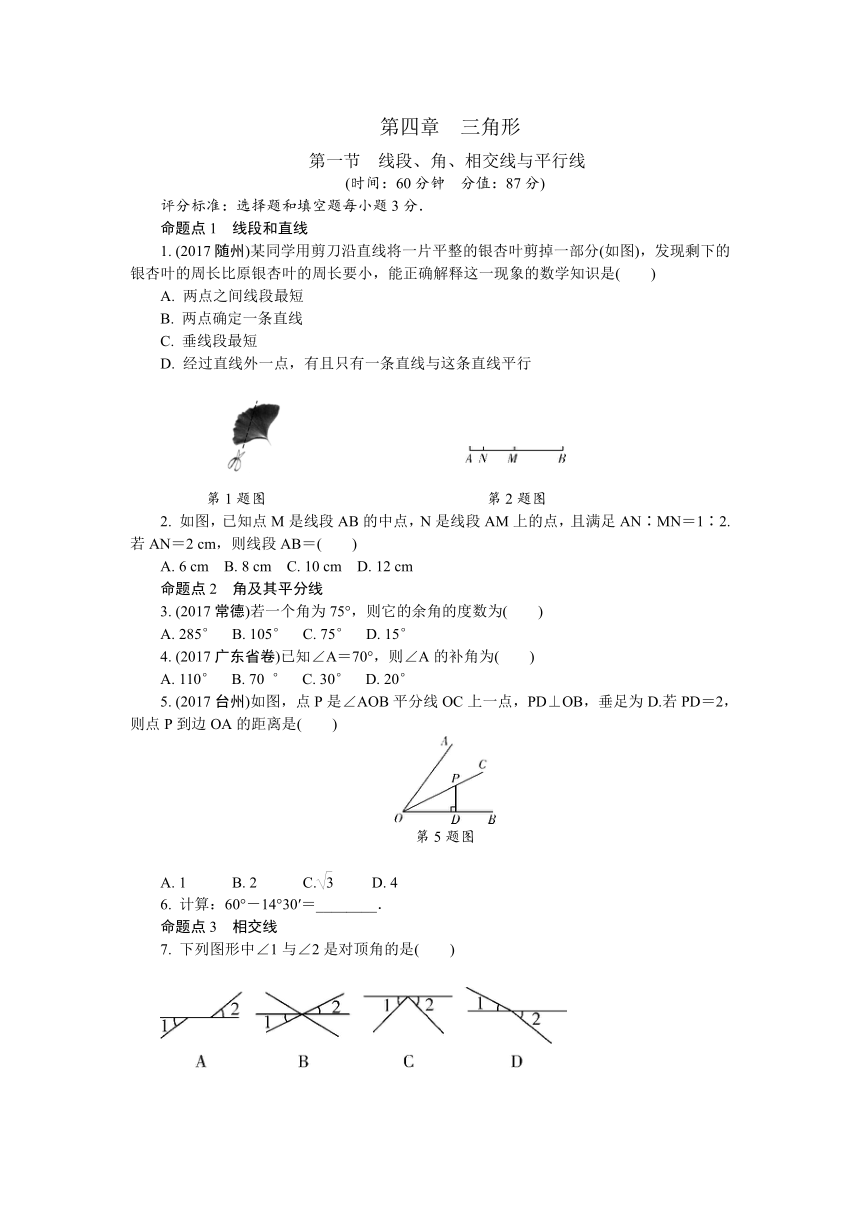 第四章　三角形
第一节　线段、角、相交线与平行线
(时间：60分钟　分值：87分)
评分标准：选择题和填空题每小题3分．
命题点1　线段和直线
1. (2017随州)某同学用剪刀沿直线将一片平整的银杏叶剪掉一部分(如图)，发现剩下的
银杏叶的周长比原银杏叶的周长要小，能正确解释这一现象的数学知识是(　　)
A. 两点之间线段最短
B. 两点确定一条直线
C. 垂线段最短
D. 经过直线外一点，有且只有一条直线与这条直线平行
A N M B
第1题图　第2题图
2. 如图，已知点M是线段AB的中点，N是线段AM上的点，且满足AN∶MN＝1∶2.
若AN＝2 cm，则线段AB＝(　　)
A. 6 cm　B. 8 cm　C. 10 cm　D. 12 cm
命题点2　角及其平分线
3. (2017常德)若一个角为75°，则它的余角的度数为(　　)
A. 285°　B. 105°　C. 75°　D. 15°
4. (2017广东省卷)已知∠A＝70°，则∠A的补角为(　　)
A. 110°　B. 70 °　C. 30°　D. 20°
5. (2017台州)如图，点P是∠AOB平分线OC上一点，PD⊥OB，垂足为D.若PD＝2，
则点P到边OA的距离是(　　)
A
C
P
O D B
第5题图
A. 1　B. 2　C.√3　D. 4
6. 计算：60°－14°30′＝________．
命题点3　相交线
7. 下列图形中∠1与∠2是对顶角的是(　　)
1 2 1 2 1 2 1 2
A B C D